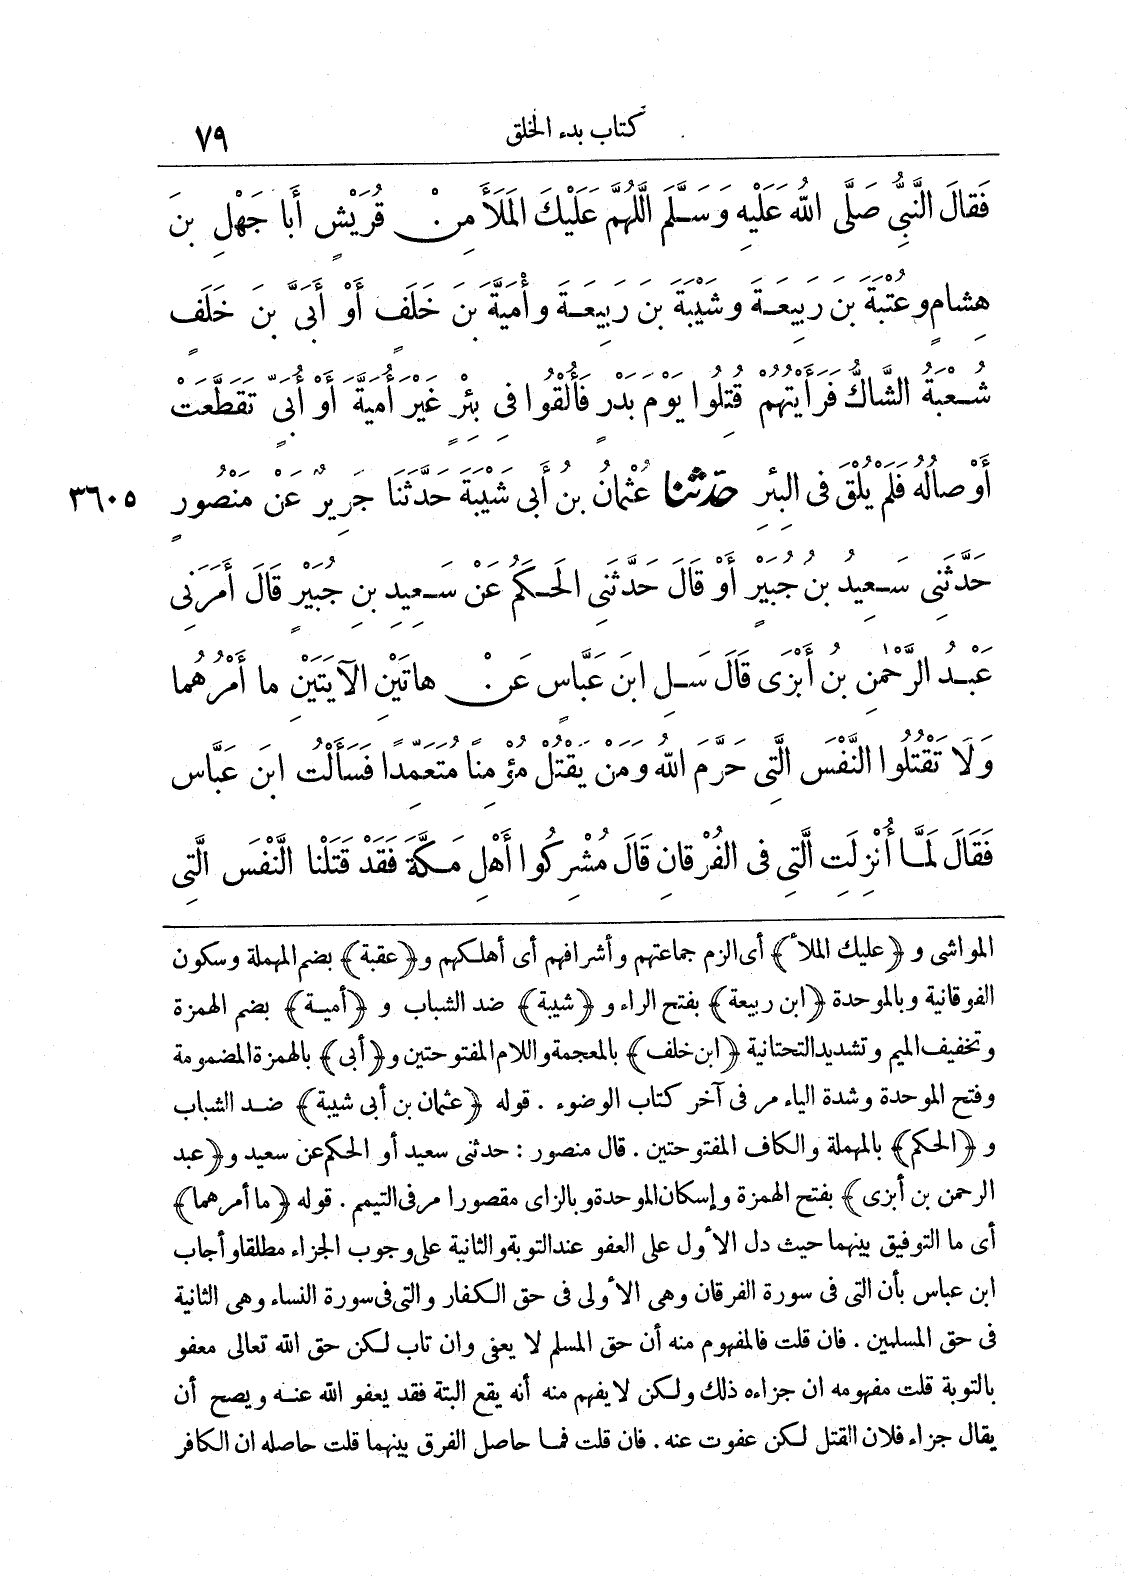 كتاب بدء الخلق
٧٩
فَقالَ النَّبِيُّ صَلَّى اللهُ عَلَيْهِ وَسَلَّمَ اللَّهُمَّ عَلَيْكَ المَلَأَ مِنْ قُرَيْشٍ أَبا جَهْلِ بنَ
هِشامٍ وعُتْبَةَ بنَ رَبِيعَةَ وشَيْبَةَ بنَ رَبِيعَةَ وأُمَيَّةَ بنَ خَلَفٍ أَوْ أُبَىَّ بنَ خَلَفٍ
شُعْبَةُ الشَّاكُّ فَرَأَيْتُهُمْ قُتِلُوا يَوْمَ بَدْرٍ فَأُلْقُوا فى بِئْرٍ غَيْرَ أُمَيَّةَ أَوْ أُبَىٍّ تَقَطَّعَتْ
أَوْصالُهُ فَلَمْ يُلْقَ فى البِئرِ حدّثنا عُثْمانُ بنُ أَبى شَيْبَةَ حَدَّثَنَا جَرِيرٌ عَنْ مَنْصُورٍ
٣٦٠٥
حَدَّثَنِى سَعِيدُ بنُ جُبَيْرٍ أَوْ قَالَ حَدَّثَنِى الحَكَمُ عَنْ سَعِيدِ بنِ جُبَيْرٍ قَالَ أَمَرَنِى
عَبْدُ الرَّحْمٰنِ بنُ أَبْزَى قَالَ سَلِ ابنَ عَبَّاسٍ عَنْ هاتَيْنِ الآيَتَيْنِ ما أَمْرُهُما
وَلَا تَقْتُلُوا النَّفْسَ الَّتِى حَرَّمَ اللهُ ومَنْ يَقْتُلْ مُؤْمِنًا مُتَعَمِّدًا فَسَأَلْتُ ابنَ عَبَّاس
فَقَالَ لَمَّا أُنْزِلَتِ الَّتِى فى الفُرْقانِ قَالَ مُشْرِكُوا أَهْلِ مَكَّةَ فَقَدْ قَتَلْنا النَّفْسَ الَّتِى
المواشى و ﴿عليك الملأ﴾ أى الزم جماعتهم وأشرافهم أى أهلكهم و﴿عقبة﴾ بضم المهملة وسكون
الفوقانية وبالموحدة ﴿ابن ربيعة﴾ بفتح الراء و ﴿شيبة﴾ ضد الشباب و ﴿أمية﴾ بضم الهمزة
وتخفيف الميم وتشديد التحتانية ﴿ابن خلف﴾ بالمعجمة واللام المفتوحتين و﴿أبى﴾ بالهمزة المضمومة
وفتح الموحدة وشدة الياء مر فى آخر كتاب الوضوء . قوله ﴿عثمان بن أبى شيبة﴾ ضد الشباب
و ﴿الحكم﴾ بالمهملة والكاف المفتوحتين . قال منصور : حدثنى سعيد أو الحكم عن سعيد و﴿عبد
الرحمن بن أبزى﴾ بفتح الهمزة وإسكان الموحدة وبالزاى مقصورا مر فى التيمم . قوله ﴿ما أمرهما﴾
أى ما التوفيق بينهما حيث دل الأول على العفو عند التوبة والثانية على وجوب الجزاء مطلقا وأجاب
ابن عباس بأن التى فى سورة الفرقان وهى الأولى فى حق الكفار والتى فى سورة النساء وهى الثانية
فى حق المسلمين . فان قلت فالمفهوم منه أن حق المسلم لا يعفى وان تاب لكن حق الله تعالى معفو
بالتوبة قلت مفهومه ان جزاءه ذلك ولكن لا يفهم منه أنه يقع البتة فقد يعفو الله عنه ويصح أن
يقال جزاء فلان القتل لكن عفوت عنه . فان قلت فما حاصل الفرق بينهما قلت حاصله ان الكافر